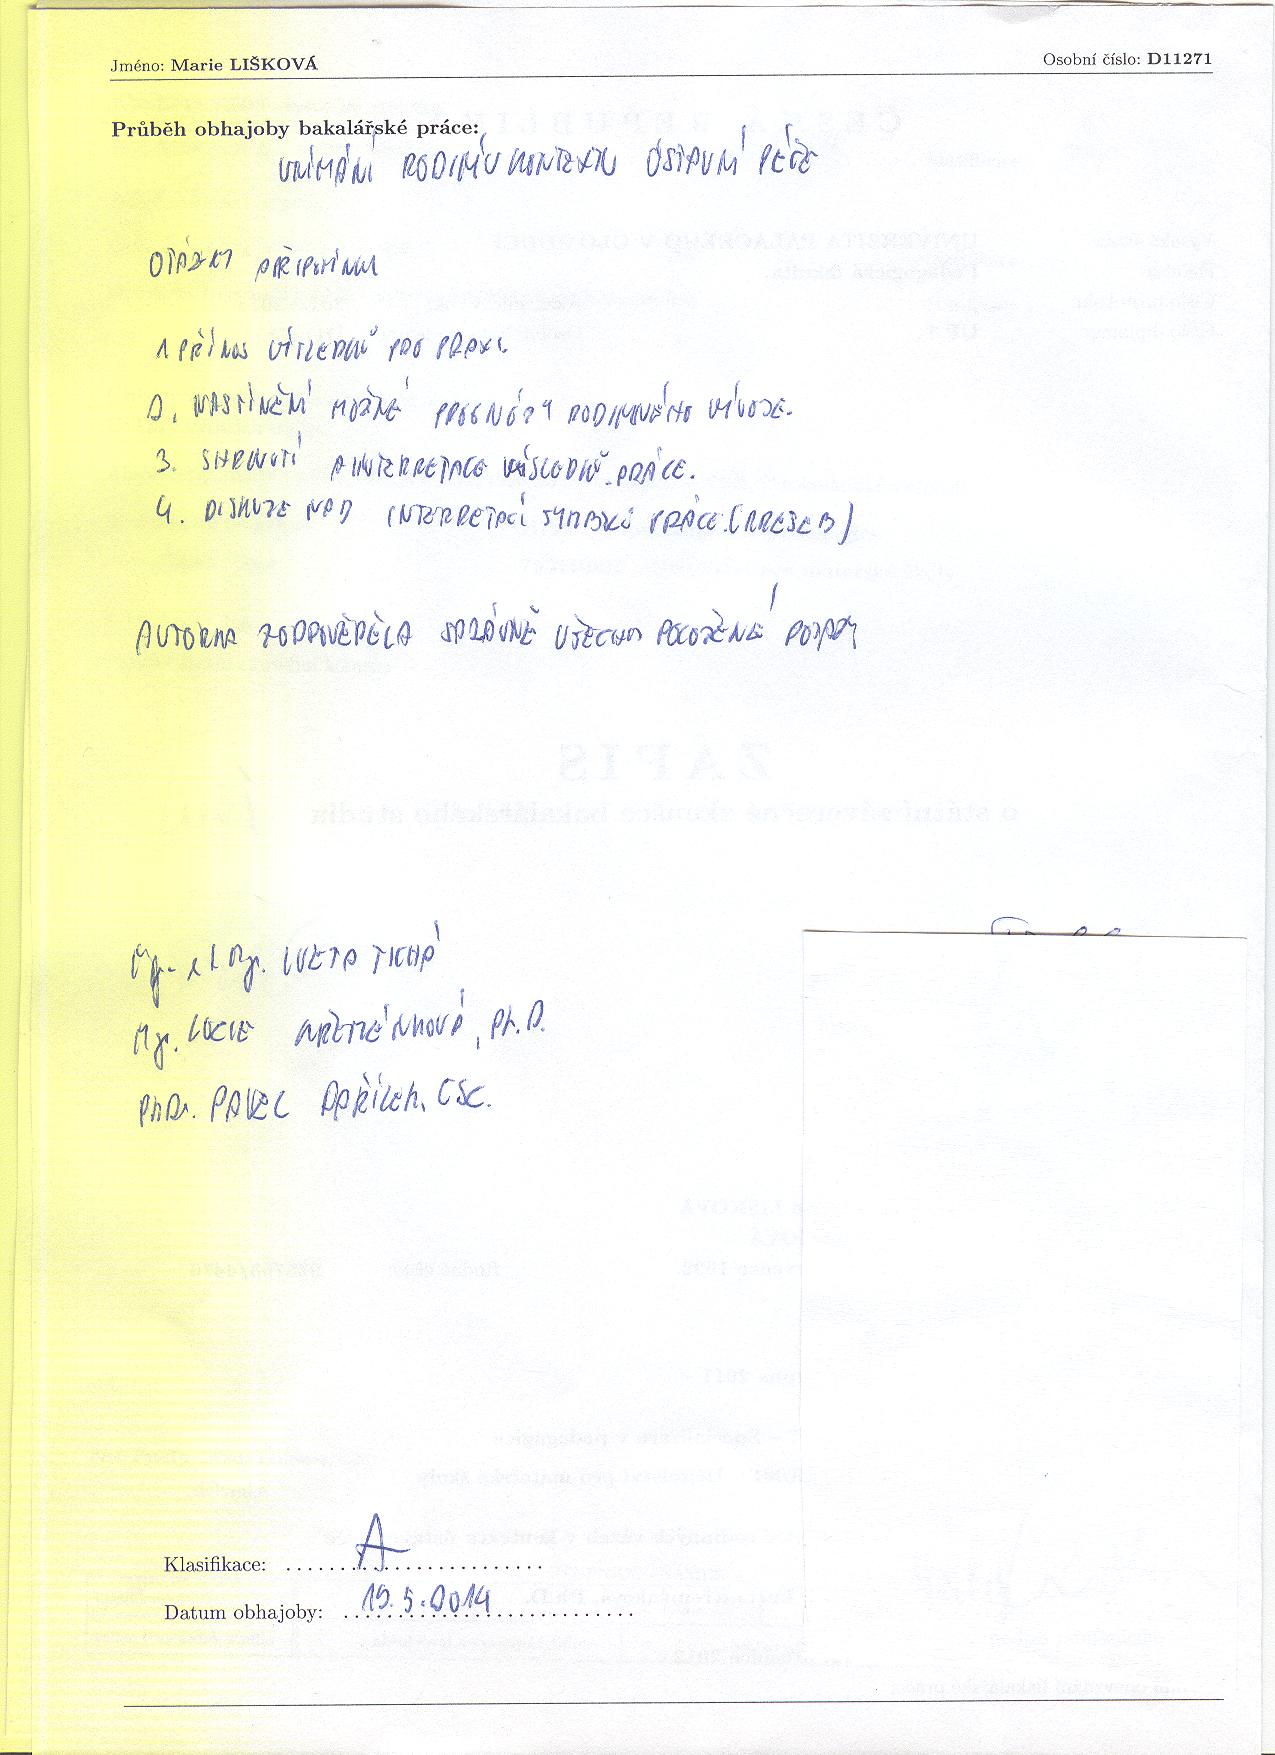 Jméno: Marie LIŠKOVÁ Osobní číslo: D11271
Průběh obhajoby bakalářské práce:
VNÍMÁNÍ RODINY V KONTEXTU ÚSTAVNÍ PÉČE
OTÁZKY PŘIPOMÍNKY
1. PŘÍNOS VÝSLEDKŮ PRO PRAXI.
2. NASTÍNĚNÍ MOŽNÉ PROGNÓZY RODINNÉHO VÝVOJE.
3. SHRNUTÍ A INTERPRETACE VÝSLEDKŮ PRÁCE.
4. DISKUZE NAD INTERPRETACÍ SYMBOLŮ PRÁCE (KRESEB)
AUTORKA ZODPOVĚDĚLA SPRÁVNĚ VŠECHNY POLOŽENÉ DOTAZY
Mgr. et Mgr. IVETA TICHÁ
Mgr. LUCIE KŘEMÉNKOVÁ, Ph.D.
PhDr. PAVEL CSc.
Klasifikace: A
Datum obhajoby: 19.5.2014